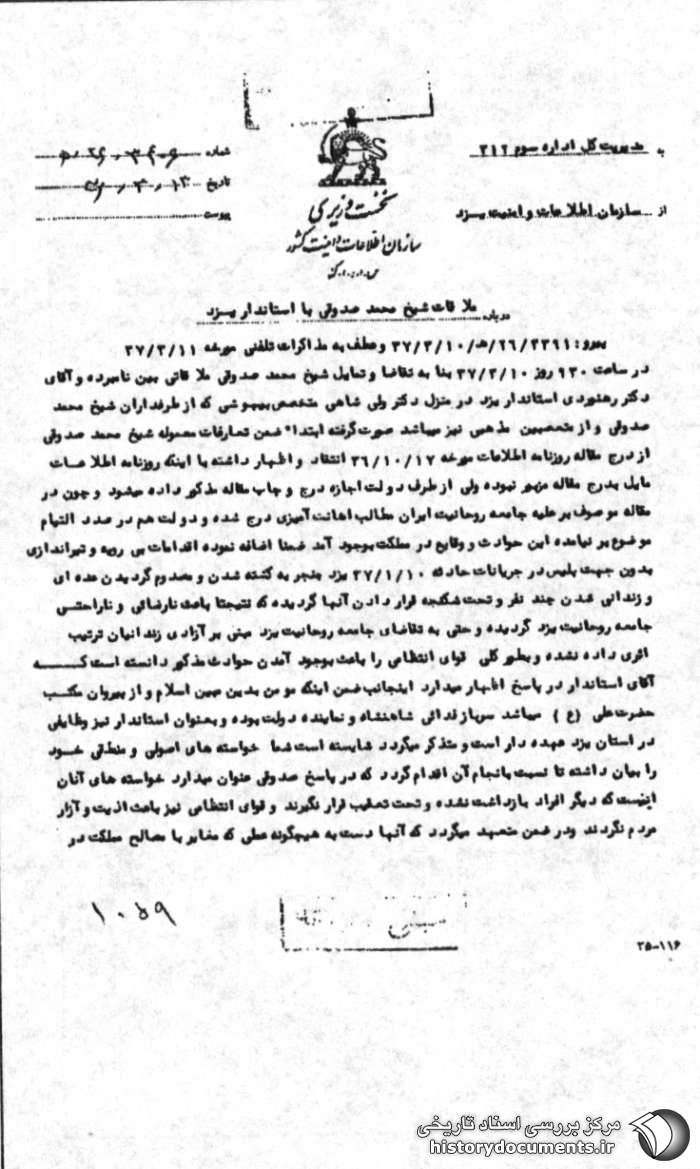 به مدیریت کل اداره سوم ۳۱۲
از سازمان اطلاعات و امنیت یزد
نخست وزیری
سازمان اطلاعات و امنیت کشور
س.ا.و.ا.ک
شماره
تاریخ
پیوست
درباره ملاقات شیخ محمد صدوقی با استاندار یزد
پیرو : ۲۶/۳۳۹۱/هـ/۳۷/۳/۱۰ وعطف به مذاکرات تلفنی مورخه ۳۷/۳/۱۱
در ساعت ۹۳۰ روز ۳۷/۳/۱۰ بنا به تقاضا و تمایل شیخ محمد صدوقی ملاقاتی بین نامبرده و آقای
دکتر رهنوردی استاندار یزد در منزل دکتر ولی شاهی متخصص بیهوشی که از طرفداران شیخ محمد
صدوقی و از متعصبین مذهبی نیز میباشد صورت گرفته ابتدا* ضمن تعارفات معموله شیخ محمد صدوقی
از درج مقاله روزنامه اطلاعات مورخه ۳۶/۱۰/۱۷ انتقاد و اظهار داشته با اینکه روزنامه اطلاعات
مایل بدرج مقاله مزبور نبوده ولی از طرف دولت اجازه درج و چاپ مقاله مذکور داده میشود و چون در
مقاله موصوف بر علیه جامعه روحانیت ایران مطالب اهانت آمیزی درج شده و دولت هم در صدد التیام
موضوع بر نیامده این حوادث و وقایع در مملکت بوجود آمد ضمنا اضافه نموده اقدامات بی رویه و تیراندازی
بدون جهت پلیس در جریانات حادثه ۳۷/۱/۱۰ یزد منجر به کشته شدن و مصدوم گردیدن عده ای
و زندانی شدن چند نفر و تحت شکنجه قرار دادن آنها گردیده که نتیجتا باعث نارضائی و ناراحتی
جامعه روحانیت یزد گردیده و حتی به تقاضای جامعه روحانیت یزد مبنی بر آزادی زندانیان ترتیب
اثری داده نشده و بطور کلی قوای انتظامی را باعث بوجود آمدن حوادث مذکور دانسته است که
آقای استاندار در پاسخ اظهار میدارد اینجانب ضمن اینکه مومن بدین مبین اسلام و از پیروان مکتب
حضرت علی (ع) میباشد سرباز فدائی شاهنشاه و نماینده دولت بوده و بعنوان استاندار نیز وظایفی
در استان یزد عهده دار است و متذکر میگردد شایسته است شما خواسته های اصولی و منطقی خود
را بیان داشته تا نسبت بانجام آن اقدام گردد که در پاسخ صدوقی عنوان میدارد خواسته های آنان
اینست که دیگر افراد بازداشت نشده و تحت تعقیب قرار نگیرند و قوای انتظامی نیز باعث اذیت و آزار
مردم نگردند ودر ضمن متعهد میگردد که آنها دست به هیچگونه عملی که مغایر با مصالح مملکت در
۱۰۵۹
۳۵-۱۱۶
مرکز بررسی اسناد تاریخی
historydocuments.ir